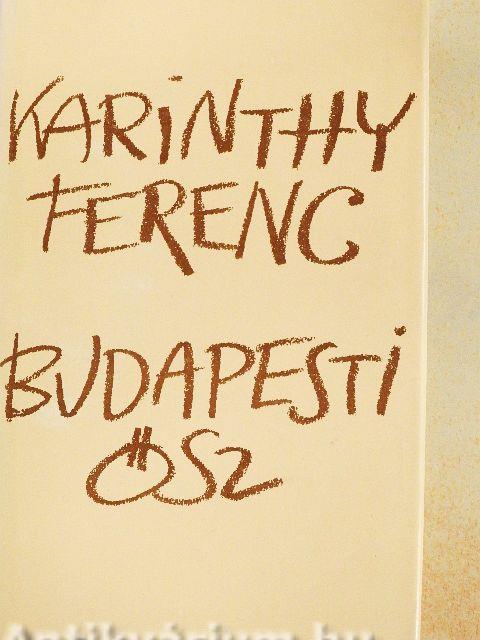 KARINTHY
FERENC
BUDAPESTI
ŐSZ
Antikvárium.hu